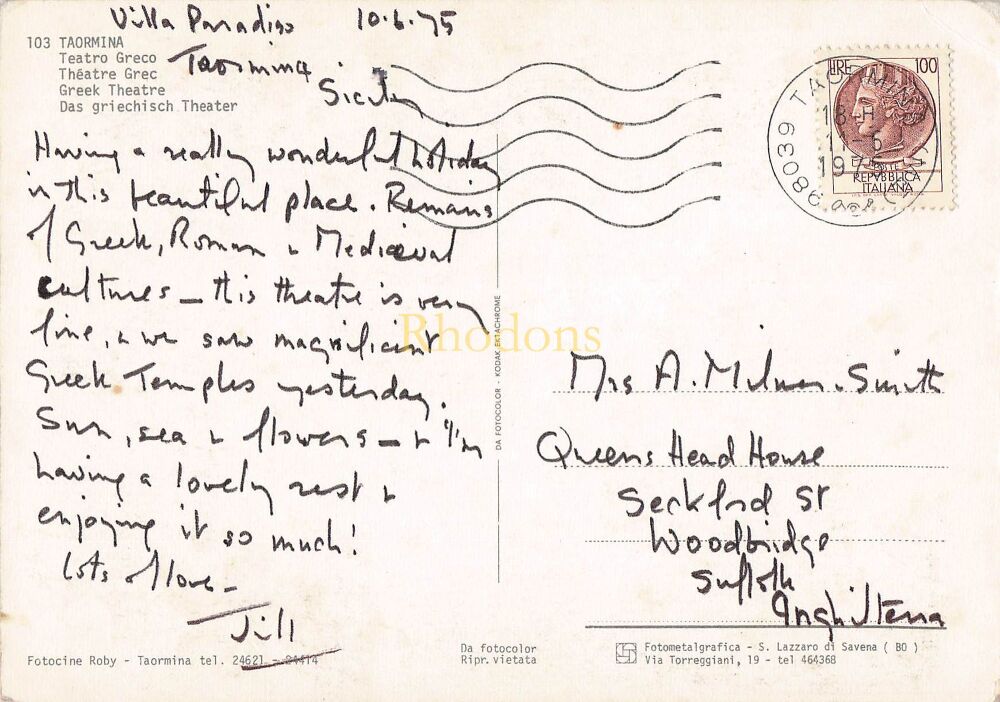 Villa Paradiso 10.6.75
103 TAORMINA
Teatro Greco
Théatre Grec
Greek Theatre
Das griechisch Theater
Taormina
Sicily
Having a really wonderful holiday
in this beautiful place. Remains
of Greek, Roman & Mediæval
cultures – this theatre is very
fine, & we saw magnificent
Greek Temples yesterday.
Sun, sea & flowers – & I'm
having a lovely rest &
enjoying it so much!
Lots of love –
Jill
Fotocine Roby - Taormina tel. 24621 - 24414
DA FOTOCOLOR - KODAK EKTACHROME
Rhodons
LIRE 100
REPVBBLICA
ITALIANA
98039 TAORMINA
18-H
1975
Mrs A. Milner-Smith
Queens Head House
Seckford St
Woodbridge
Suffolk
Inghilterra
Da fotocolor
Ripr. vietata
Fotometalgrafica - S. Lazzaro di Savena ( BO )
Via Torreggiani, 19 - tel 464368